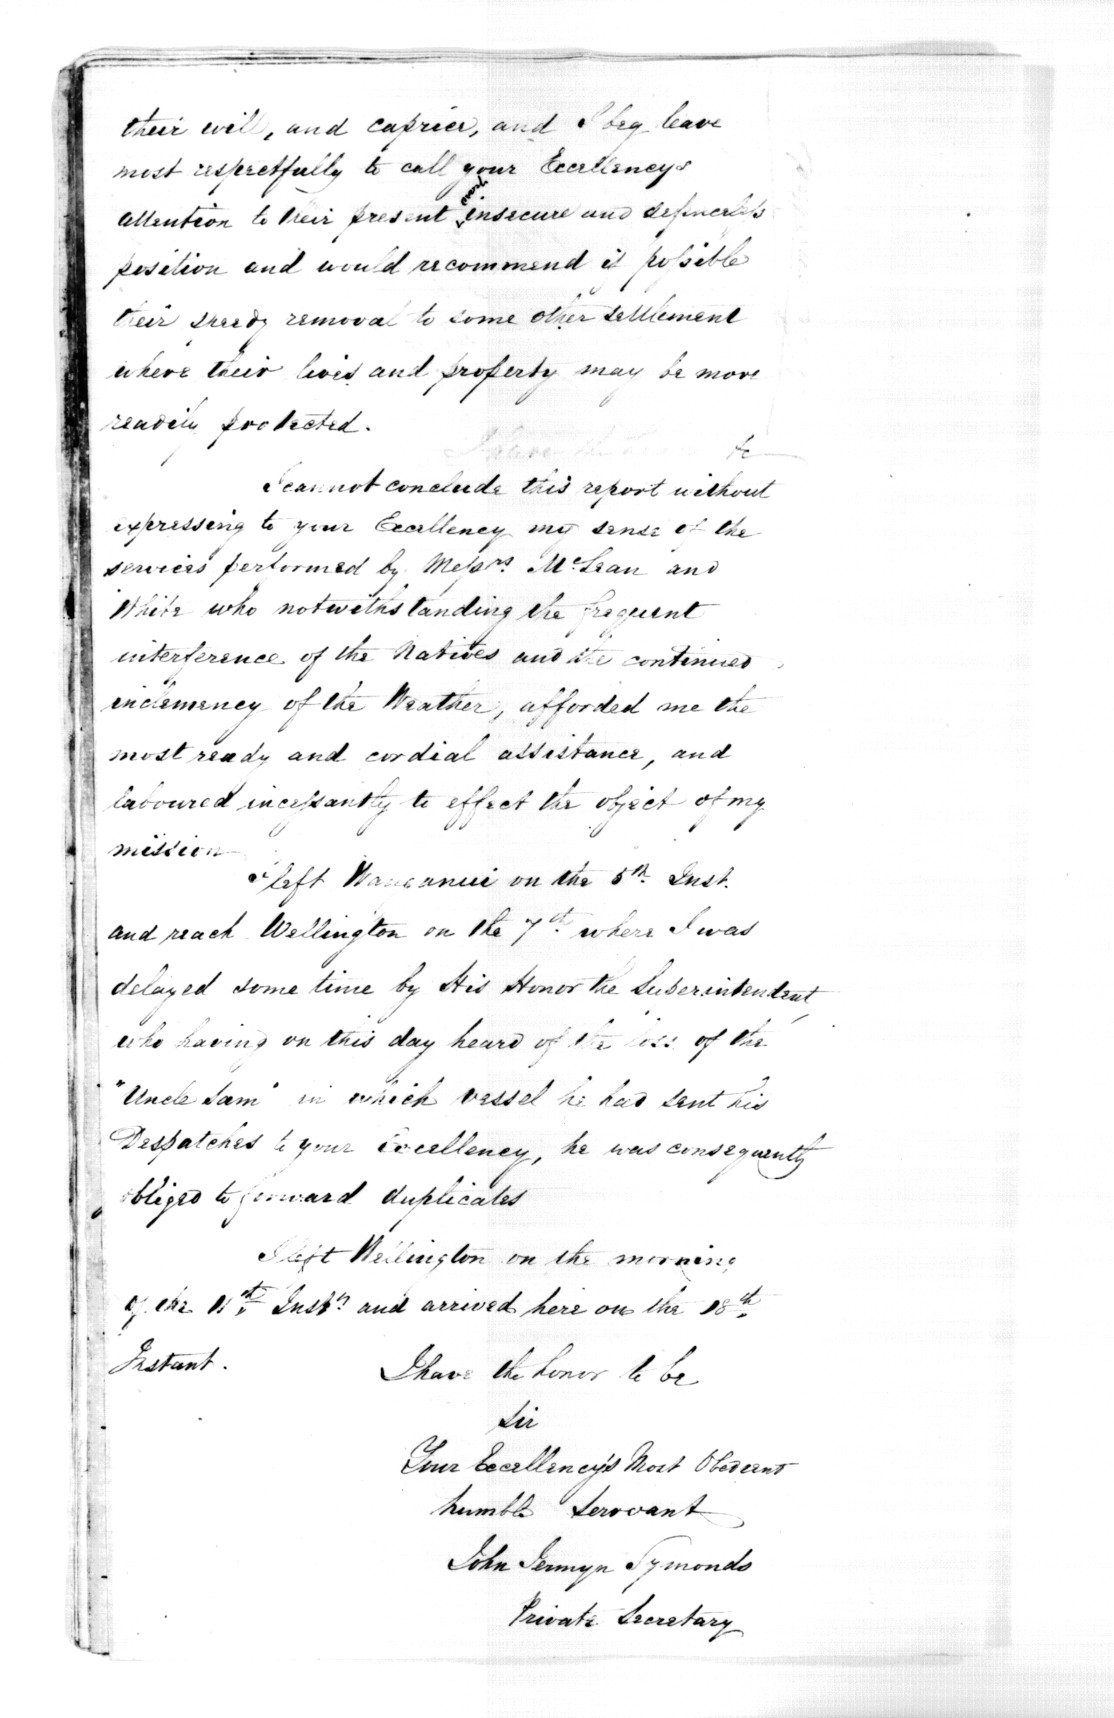 their will, and caprice, and I beg leave
most respectfully to call your Excellency's
attention to their present most insecure and defenceless
position and would recommend if possible
their speedy removal to some other settlement
where their lives and property may be more
readily protected.
I have the &c
I cannot conclude this report without
expressing to your Excellency my sense of the
services performed by Messrs. McLean and
White who notwithstanding the frequent
interference of the Natives and the continued
inclemency of the Weather, afforded me the
most ready and cordial assistance, and
laboured incessantly to effect the object of my
mission
I left Wanganui on the 5th. Inst.
and reach Wellington on the 7th. where I was
delayed some time by His Honor the Superintendent,
who having on this day heard of the loss of the
"Uncle Sam" in which vessel he had sent his
Despatches to your Excellency, he was consequently
obliged to forward duplicates
I left Wellington on the morning
of the 11th. Instn and arrived here on the 18th.
Instant.
I have the honor to be
Sir
Your Excellency's Most Obedient
humble Servant
John Jermyn Symonds
Private Secretary